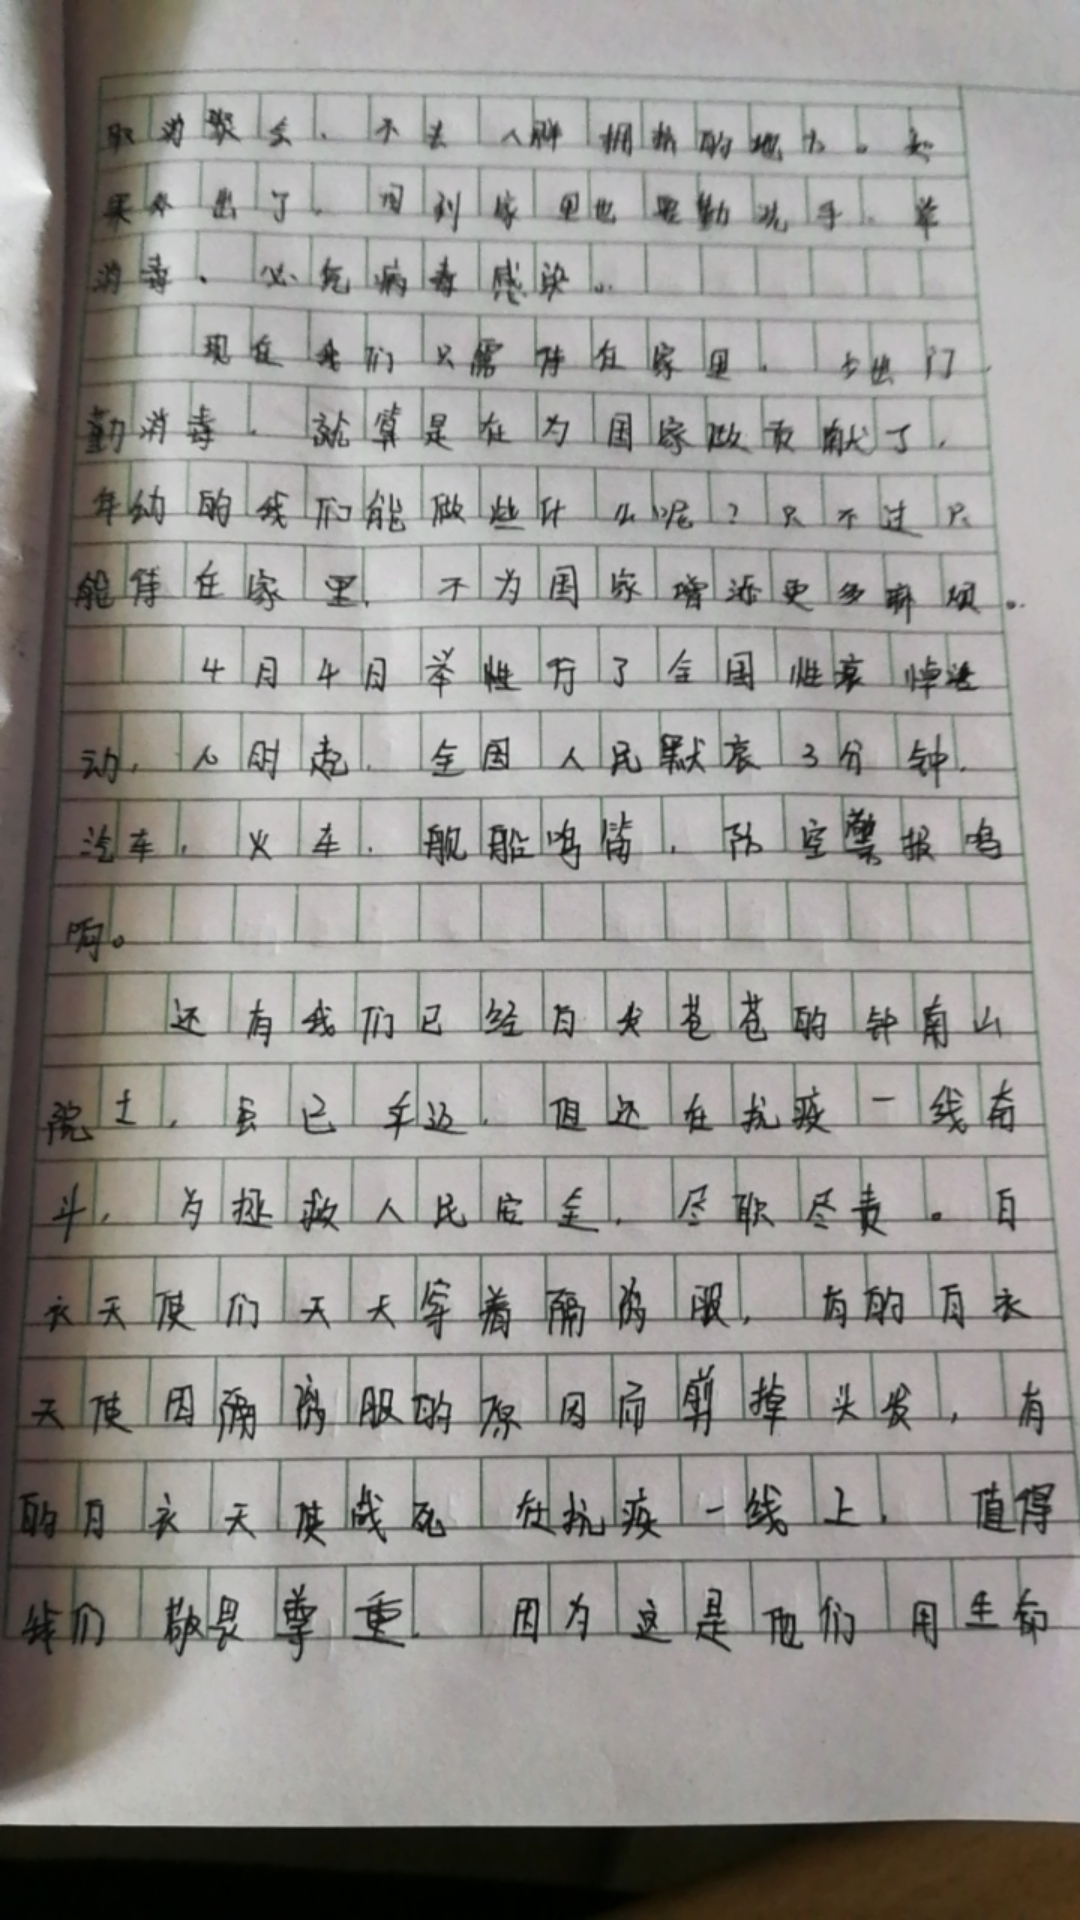 取消聚会，不去人群拥挤的地方。如
果外出了，回到家里也要勤洗手，举
消毒，以免病毒感染。
现在我们只需待在家里，少出门，
勤消毒，就算是在为国家做贡献了，
年幼的我们能做些什么呢？只不过只
能待在家里，不为国家增添更多麻烦。
4月4日举性行了全国性哀悼活
动，人时起，全国人民默哀3分钟，
汽车，火车，舰船鸣笛，防空警报鸣
响。
还有我们已经白发苍苍的钟南山
院士，虽已年迈，但还在抗疫一线奋
斗，为拯救人民安全，尽职尽责。白
衣天使们天天穿着隔离服，有的白衣
天使因隔离服的原因而剪掉头发，有
的白衣天使战死在抗疫一线上，值得
我们敬畏尊重，因为这是他们用生命